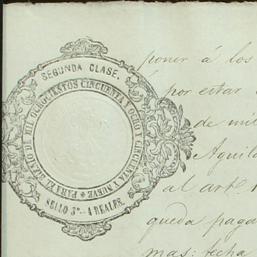 SEGUNDA CLASE.
PARA EL BIENIO DE MIL OCHOCIENTOS CINCUENTA Y OCHO Y CINCUENTA Y NUEVE
SELLO 3º 4 REALES.
poner á los
por estar
de mi
Aguila
al arte
queda paga
mas: fecha